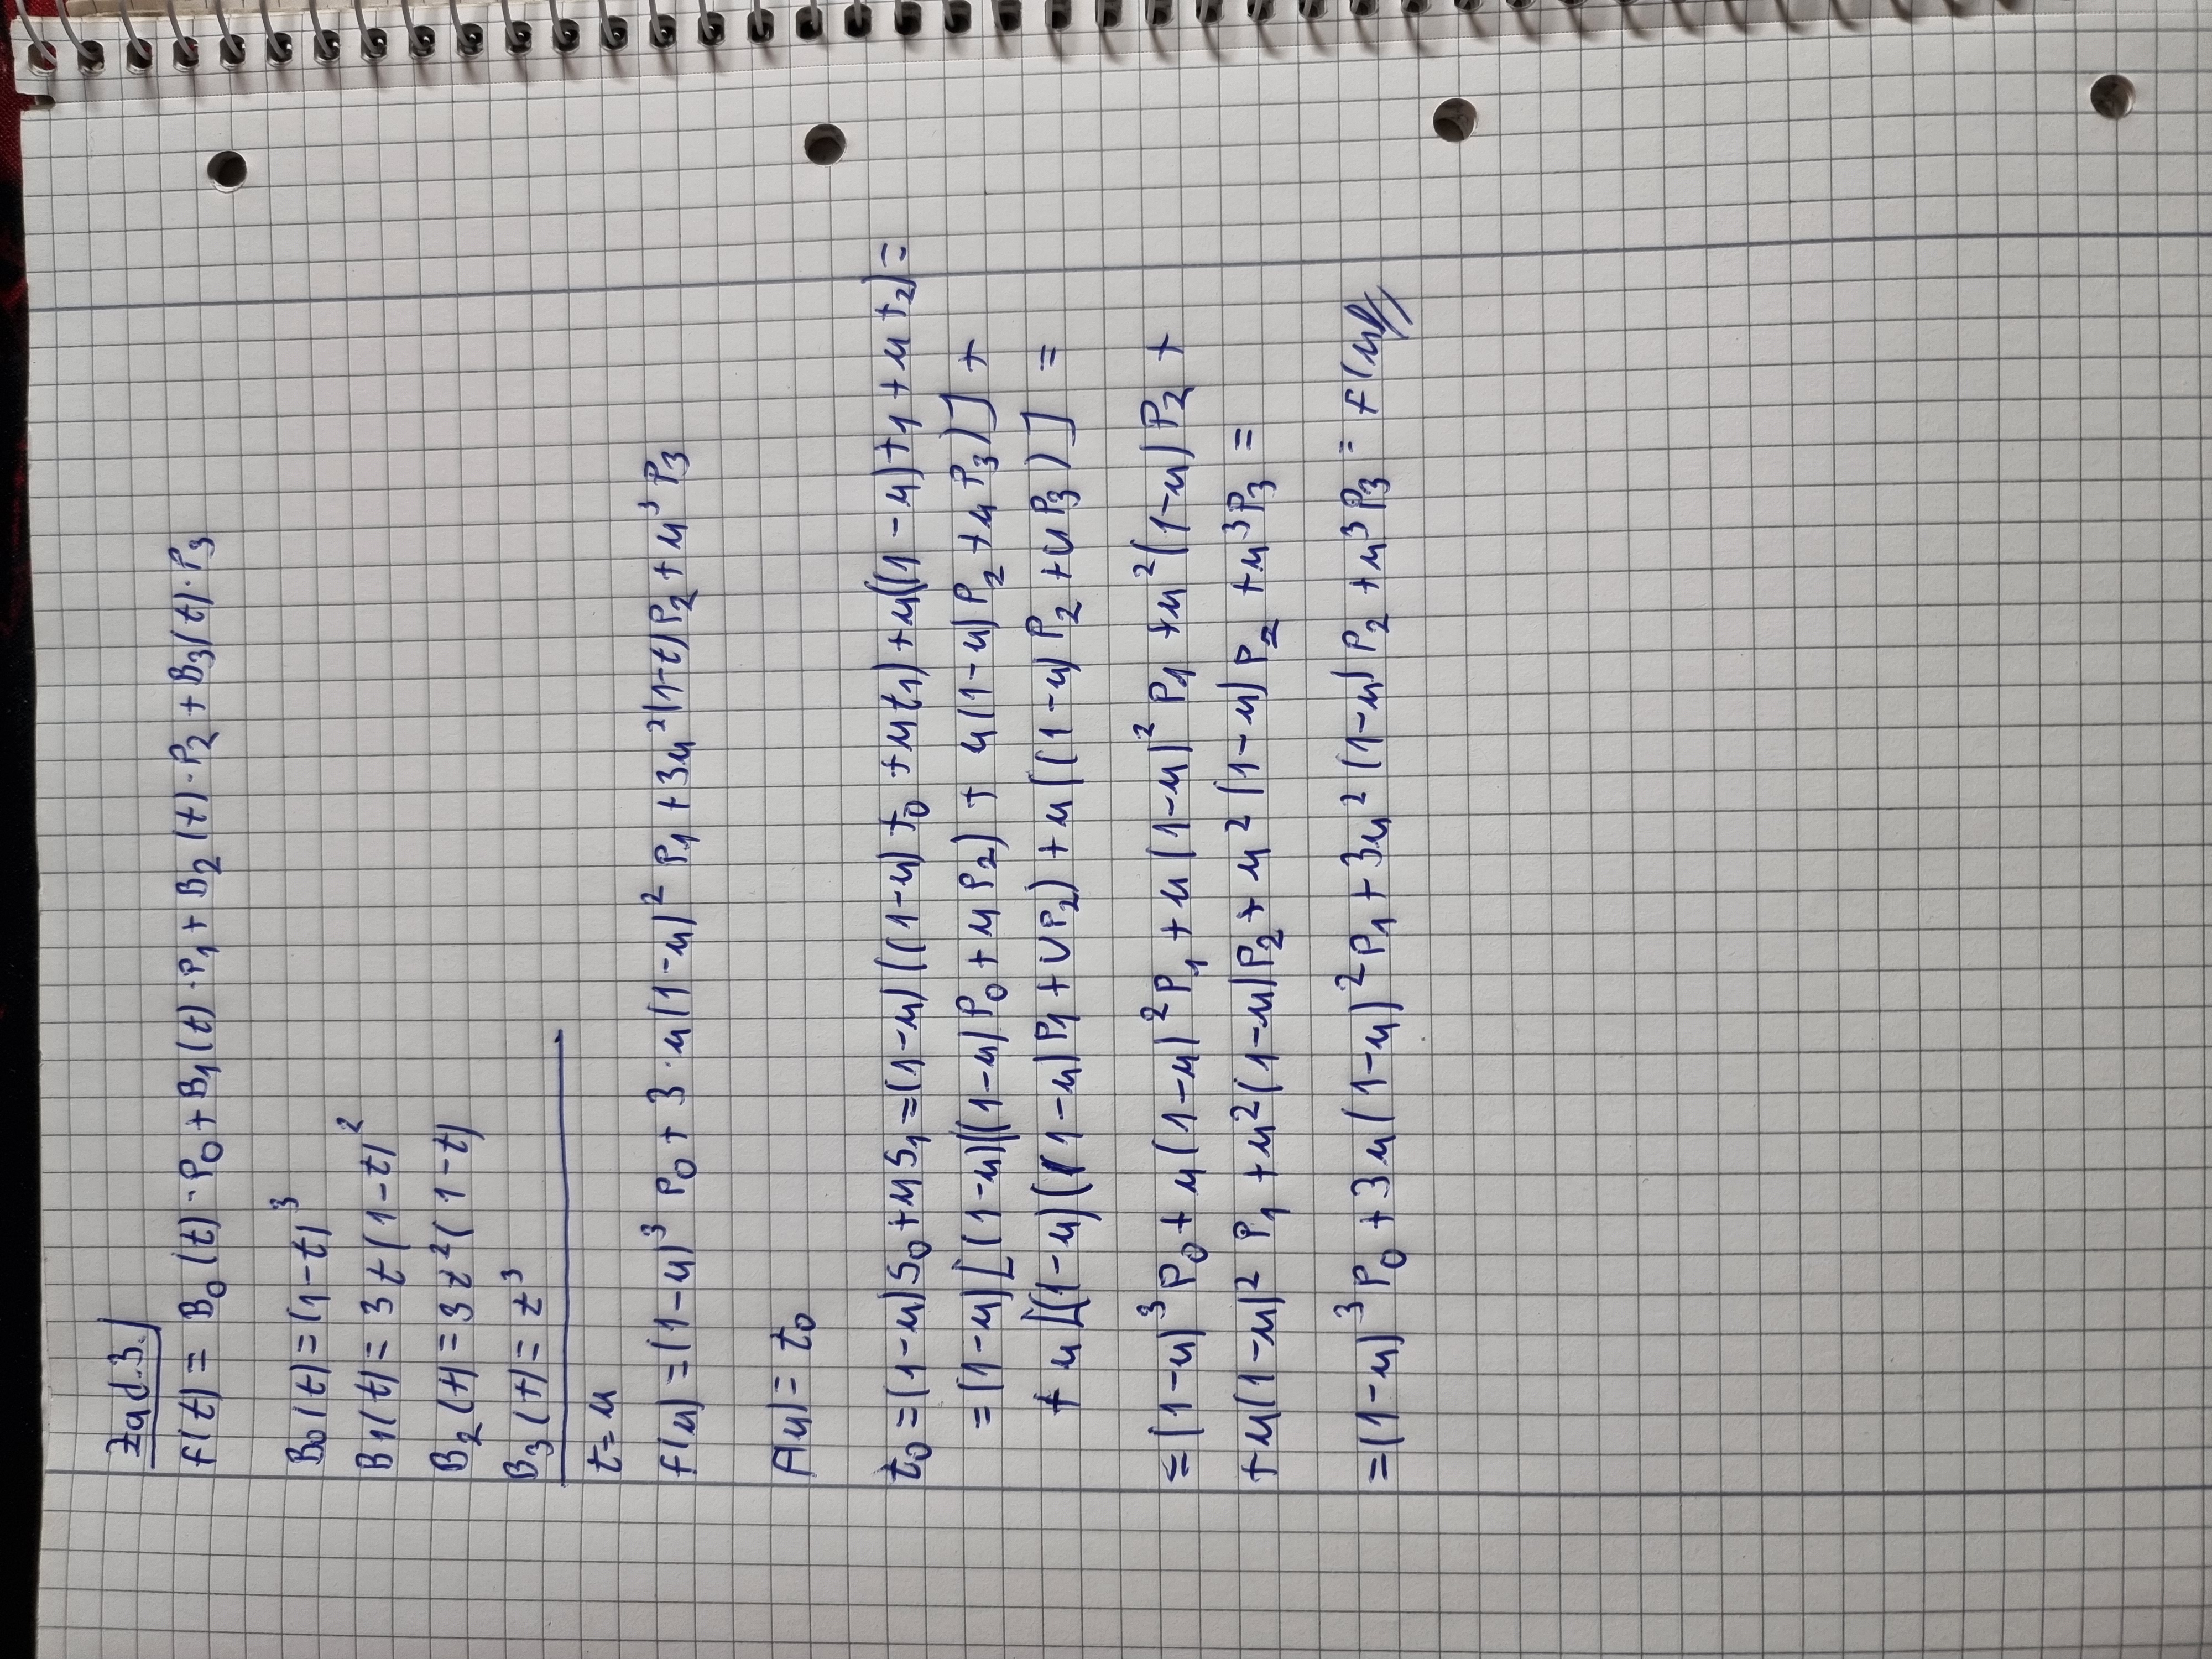 Zad.3.
f(t) = B₀(t)·P₀ + B₁(t)·P₁ + B₂(t)·P₂ + B₃(t)·P₃
B₀(t) = (1-t)³
B₁(t) = 3t(1-t)²
B₂(t) = 3t²(1-t)
B₃(t) = t³
t=u
f(u) = (1-u)³ P₀ + 3·u(1-u)² P₁ + 3u²(1-t)P₂ + u³ P₃
f(u) = t₀
t₀ = (1-u)S₀ + uS₁ = (1-u)((1-u)t₀ + ut₁) + u((1-u)t₁ + ut₂) =
= (1-u)[(1-u)((1-u)P₀ + uP₂) + u(1-u)P₂ + uP₃)] +
+ u[(1-u)((1-u)P₁ + UP₂) + u((1-u)P₂ + UP₃)] =
= (1-u)³P₀ + u(1-u)²P₁ + u(1-u)²P₁ + u²(1-u)P₂ +
+ u(1-u)² P₁ + u²(1-u)P₂ + u²(1-u)P₂ + u³P₃ =
= (1-u)³P₀ + 3u(1-u)²P₁ + 3u²(1-u)P₂ + u³P₃ = f(u)//